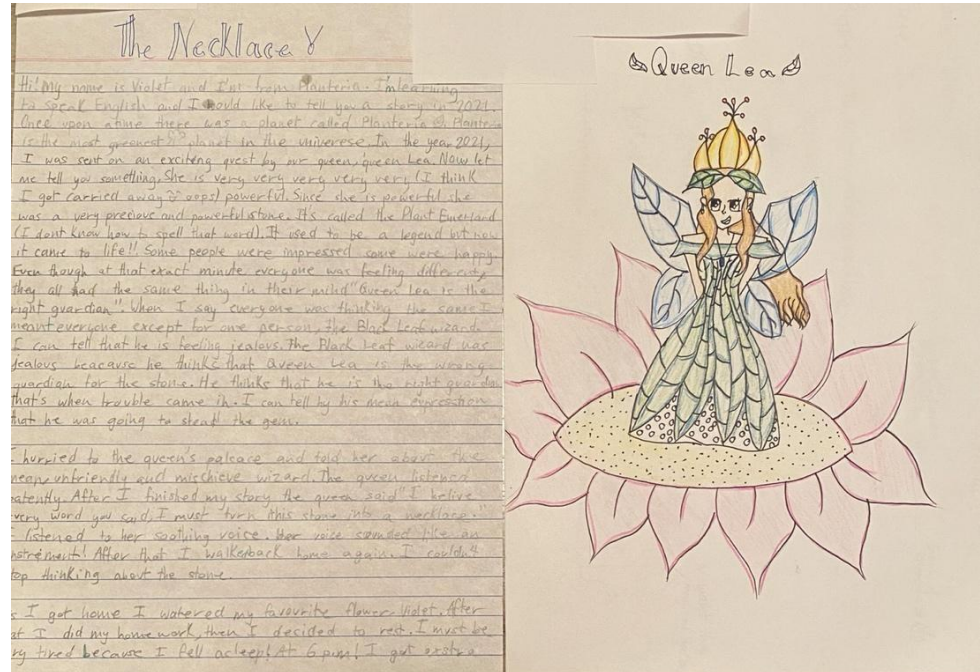 The Necklace
Hi! My name is Violet and I'm from Planteria. I'm learning
to speak English and I would like to tell you a story in 2021.
Once upon a time there was a planet called Planteria. Planteria
is the most greenest planet in the univerese. In the year 2021,
I was sent on an exciteng quest by our queen, queen Lea. Now let
me tell you something. She is very very very very very (I think
I got carried away oops) powerful. Since she is powerful she
was a very precious and powerful stone. It's called the Plant Emerland
(I dont know how to spell that word). It used to be a legend but now
it came to life!! Some people were impressed some were happy.
Even though at that exact minute everyone was feeling differently
they all had the same thing in their mind "Queen Lea is the
right guardian". When I say everyone was thinking the same I
meant everyone except for one person, the Black Leaf wizard.
I can tell that he is feeling jealous. The Black Leaf wizard was
jealous beacause he thinks that Queen Lea is the wrong
guardian for the stone. He thinks that he is the right guardian
that's when trouble came in. I can tell by his mean expression
that he was going to steal the gem.
I hurried to the queen's palcace and told her about the
mean, unfriendly and mischieve wizard. The queen listened
patently. After I finished my story the queen said "I belive
every word you said, I must turn this stone into a necklace."
I listened to her soothing voice. Her voice sounded like an
instrement! After that I walked back home again. I couldn't
stop thinking about the stone.
As I got home I watered my favourite flower. Violet. After
that I did my homework, then I decided to rest. I must be
very tired because I fell asleep! At 6 pm! I got exstra
Queen Lea